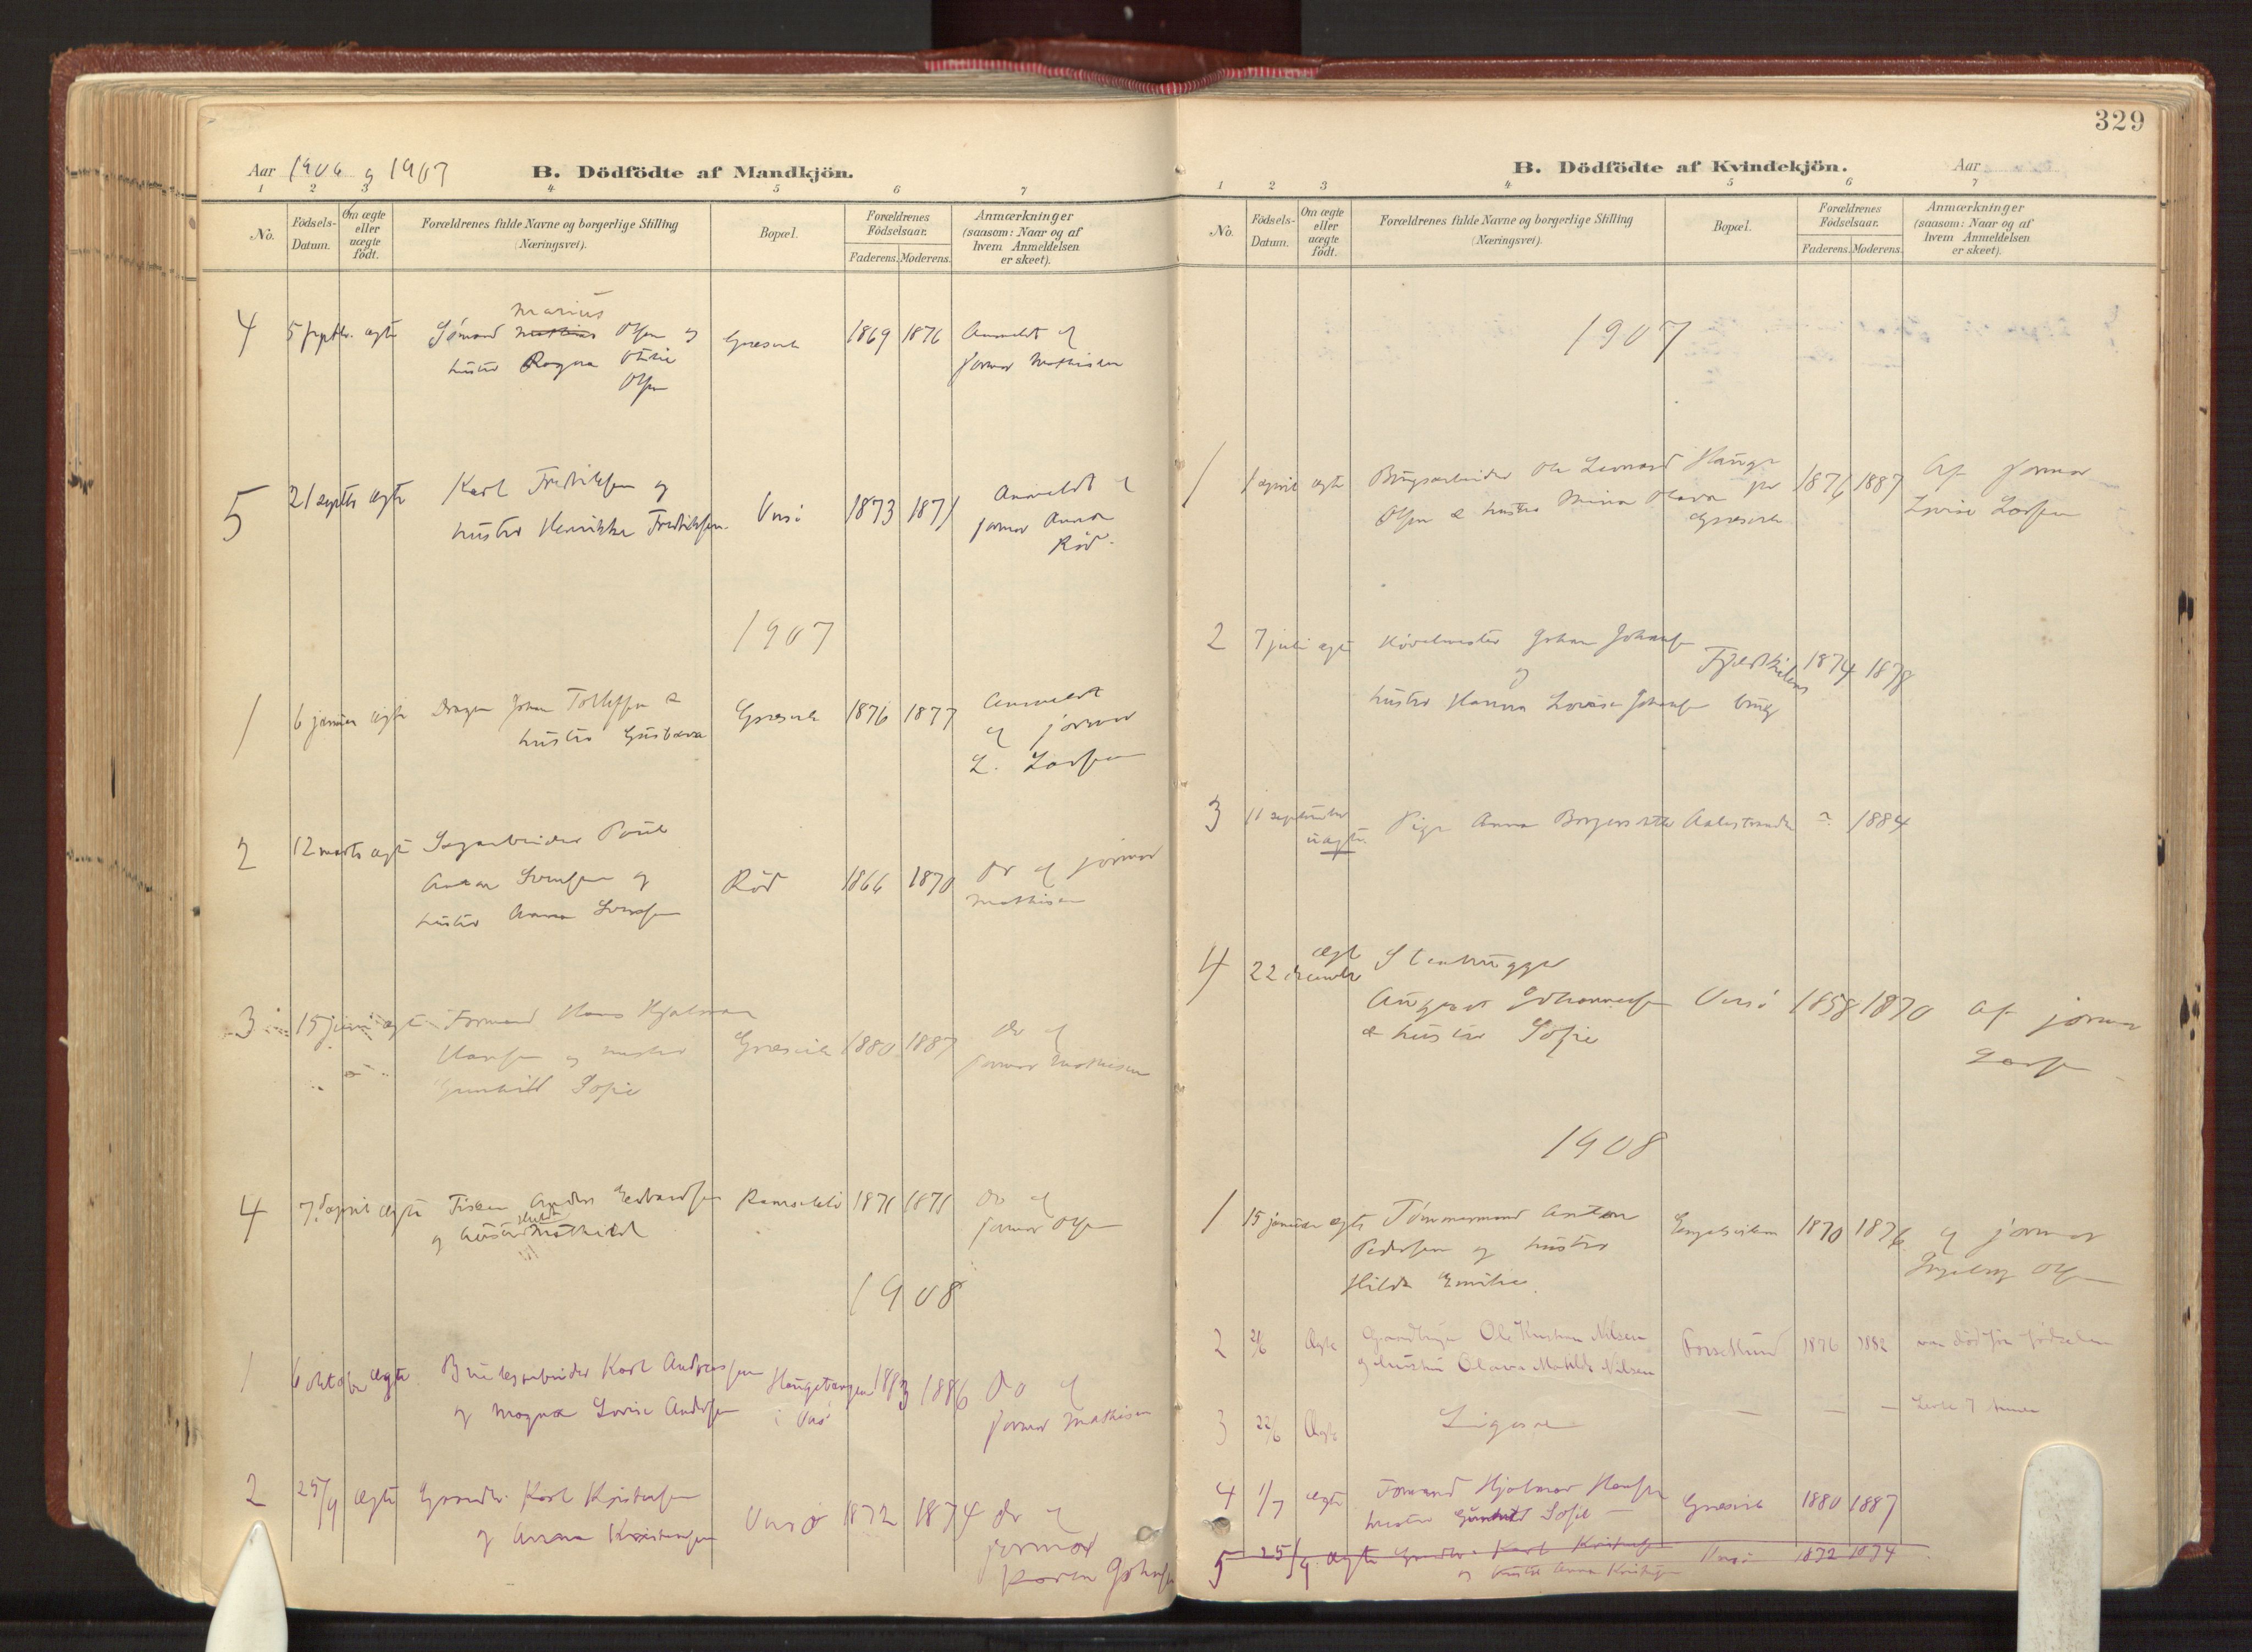 Aar 1906 og 1907
B. Dödfödte af Mandkjön.
1 2 3 4 5 6 7
No.
Födsels-
Datum.
Om ægte
eller
uægte
födt.
Forældrenes fulde Navne og borgerlige Stilling
(Næringsvei).
Bopæl.
Forældrenes
Födselsaar.
Faderens. Moderens.
Anmærkninger
(saasom: Naar og af
hvem Anmeldelsen
er skeet).
Marius
4 5 septbr. ægte Sömand Olsen og Græsvik 1869 1876 Anmeldt af
hustru Ragna Otilie jormor Mathisen
Olsen
5 21 septbr ægte Karl Fredriksen og
hustru Henrikke Fredriksen. Onsö 1873 1871 Anmeldt af
jormor Anna
Röd.
1907
1 6 januar ægte Johan Tollefsen & Græsvik 1876 1877 Anmeldt
hustru Gustava af jormor
L. Larsen
2 12 marts ægte Sagarbeider Poul
Anton Svendsen og Röd 1866 1870 do af jormor
hustru Anna Svendsen Mathisen
3 15 juni ægte Formand Hans Hjalmar
Hansen og hustru Græsvik 1880 1887 do af
Gunhild Sofie jormor Mathisen
4 7 april ægte Fisker Anders Edvardsen 1871 1871 do af
og hustru Mathilde jormor Olsen
1908
1 6 oktober ægte Karl Andreassen Haugetangen 1883 1886 do af
og Magna Lovise Andersen i Onsö jormor Mathisen
2 25/9 ægte Grandtr. Karl Kristensen Onsö 1872 1874 do af
og Anna Kristensen jormor
Karen Johnsen
329
B. Dödfödte af Kvindekjön.
Aar
1 2 3 4 5 6 7
No.
Födsels-
Datum.
Om ægte
eller
uægte
födt.
Forældrenes fulde Navne og borgerlige Stilling
(Næringsvei).
Bopæl.
Forældrenes
Födselsaar.
Faderens. Moderens.
Anmærkninger
(saasom: Naar og af
hvem Anmeldelsen
er skeet).
1907
1 1 april ægte Brugsarbeider Ole Leonard Hauge 1876 1887 Af jormor
Olsen & hustru Mina Olava pr Græsvik Lovise Larsen
2 7 juli ægte Hövelmester Johan Johansen 1874 1878
og
hustru Hanna Lovise Johansen brug
3 11 september Pige Anna ? 1884
uægte.
4 22 december ægte Stenhugger
August Johannesen Onsö 1858 1870 Af jormor
& hustru Sofie Larsen
1908
1 15 januar ægte Tömmermand Anton Engelsviken 1870 1876 af jormor
Pedersen og hustru Ingeborg Olsen
Hilda Emilie.
2 2/6 Ægte Ole Kristian Nilsen 1876 1882 var död för födselen
og hustru Olava Matilde Nilsen
3 22/6 Ægte Ligesaa — — — Levde 7 timer
4 1/7 ægte Formand Hjalmar Hansen Græsvik 1880 1887
hustru Gunhild Sofie —
5 25/9 ægte Grandtr. Karl Kristensen Onsö 1872 1874
og hustru Anna Kristensen